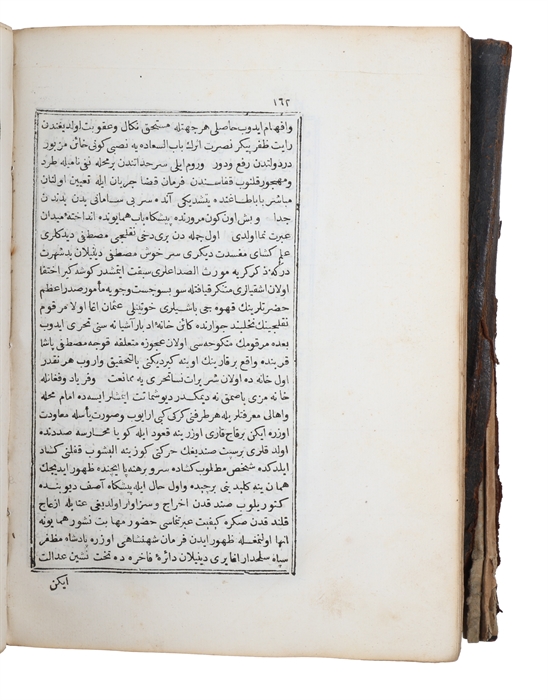 ١٦٢
وافهام ايدوب حاصيلى هرجهتله مستحق نكال وعقوبت اولديغندن
رايت ظفر پيكر نصرت اثرك باب السعاده يه نصبى كونى خائن مزبور
دردولتدن رفع ودور وروم ايلى سرحداتندن برمحله نفى نامیله طرد
ومهجور قلنوب قفاسندن فرمان قضا جريان ايله تعيين اولنان
مباشر باباطاغنده يتشديكى آنده سر بى سامانى بدن پديدن
جدا وبش اون كون مرورنده پيشكاه باب همايونده انداخته ميدان
عبرت نما اولدى اول جمله دن برى دخى نفلچى مصطفى ديدكلرى
علم كشاى مفسدت ديكرى سرخوش مصطفى دينيلان بدشهرت
دركه ذكر كريه مورث الصداعلرى سبقت ايتمشدر كوشه كير اختفا
اولان اشقيالرى متنكر قيافتله سو بسو جست وجويه مأمور صدر اعظم
حضرتلرينك قهوه جى باشيلرى خوتنلى عثمان اغا اولا مرقوم
نفلچينك تخليند جوارنده كائن خانۀ ادبار آشيانه سنى تحرى ايدوب
بعده مرقومك منكوحه سى اولان عجوزه متعلقه قوجه مصطفى پاشا
قربنده واقع برقارينك اوينه كيرديكنى بالتحقيق واروب هر نقدر
اول خانه ده اولان شريرات نسا تحرى يه ممانعت وفرياد وفغانله
خانه مزى باصمق نه ديمكدر ديو شماتت ايتمشلر ايسه ده امام محله
واهالى معرفتلريله هر طرفنى كركى كبى ارايوب وصورت يأسله معاودت
اوزره ايكن برقاج قارى اوزرينه قعود ايله كويا محارسه صددنده
اولدقلرى بر بست صنديغك حركتى كوزينه اليشوب قفلنى كشاد
ايلدكده شخص مطلوب كشاده سر وبرهنه پا ايچنده ظهور ايديجك
همان ينه كليدينى برچيده واول حال ايله پيشكاه آصف ديوبنده
كتوريلوب صندقدن اخراج وسزاوار اولديغى عتابله ازعاج
قلندقدن صكره كيفيت عبرتماسى حضور مهابت نشور همايونه
انها اولنمغله ظهور ايدن فرمان شهنشاهى اوزره پادشاه مظفر
سپاه سلحدار اغا يرى دينيلان دائرۀ فاخره ده تخت نشين عدالت
ايكن